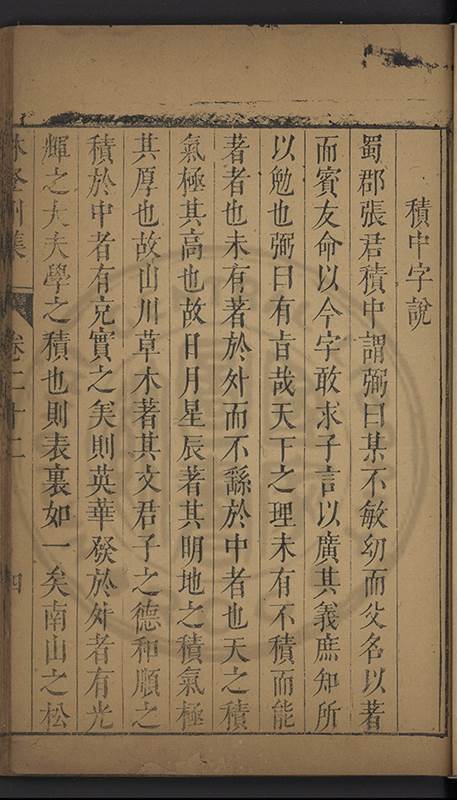 積中字說
蜀郡張君積中謂弼曰某不敏幼而父名以著
而賓友命以今字敢求子言以廣其義庶知所
以勉也弼曰有旨哉天下之理未有不積而能
著者也未有著於外而不繇於中者也天之積
氣極其高也故日月星辰著其明地之積氣極
其厚也故山川草木著其文君子之德和順之
積於中者有充實之美則英華發於外者有光
輝之大夫學之積也則表裏如一矣南山之松
集 卷二十二 四